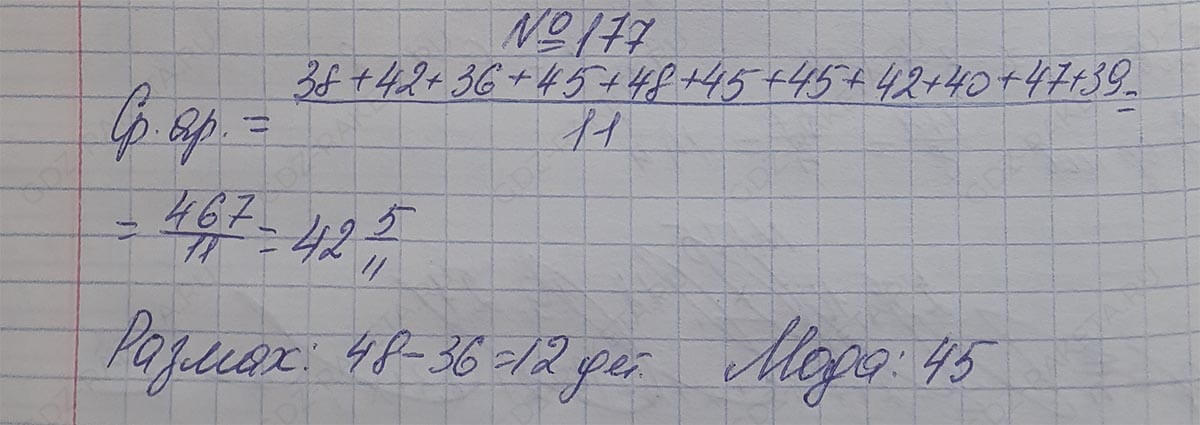 №177
Ср. ар. = 38+42+36+45+48+45+45+42+40+47+39 =
11
= 467/11 = 42 5/11
Размах: 48-36=12 дет. Мода: 45